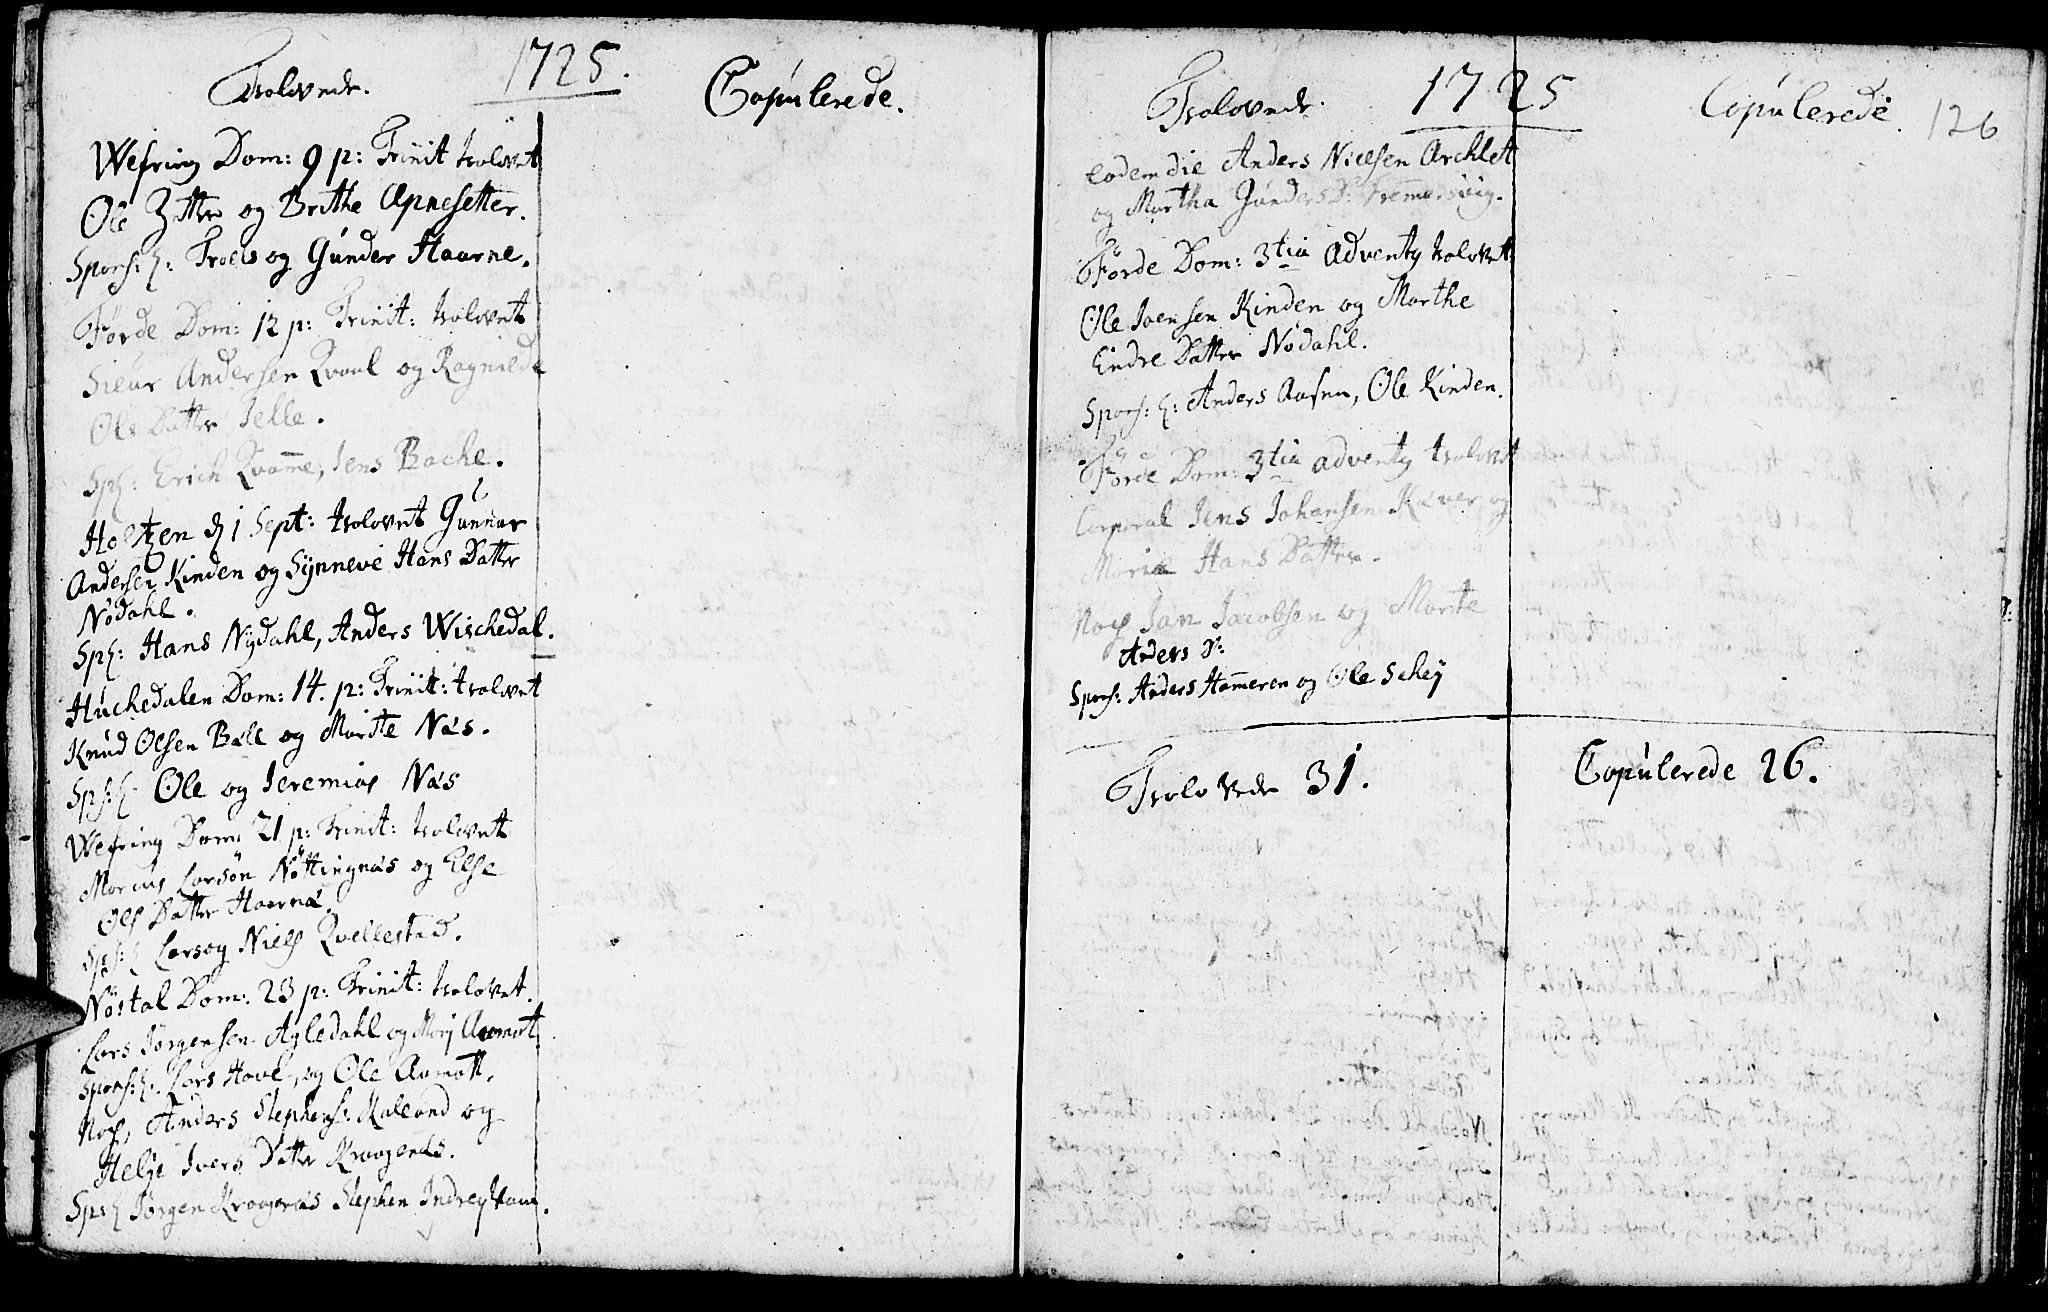 1725.
Trolovede.
Copulerede.
Wefring Dom: 9 p: Trinit trolovet
Ole Zettre og Brithe Apnesetter.
Spons: Troels og Gunder Haarne.
Førde Dom: 12 p: Trinit: trolovet
Siúr Andersen Qvaal og Ragnilde
Ols Datter Ielle.
Sp: Erich Qvamme, Iens Bache.
Holtzen d 1 Sept: trolovet Gunnar
Andersen Kinden og Synneve Hans Datter
Nødahl.
Sp: Hans Nydahl, Anders Wischedal.
Huchedalen Dom: 14. p: Trinit: trolovet
Knud Olsen Bell og Marite Næs.
Sps: Ole og Ieremias Næs
Wefring Dom: 21 p: Trinit: trolovet
Marcus Larsøn Nøttingnæs og Else
Ols Datter Haarnæ.
Sps: Lars og Niels Qvellestad.
Nøstal Dom: 23 p: Trinit: trolovet.
Lars Iørgensen Agledahl og Marj Aamot.
Spons: Lars Hove, og Ole Aamott.
Nok, Anders Stephens: Kaland og
Helje Ivers Datter Kraagenes.
Sps Iørgen Kraagenæs Stephen Indrey
1725
Trolovede.
Copulerede.
126
eodem die Anders Nielsen Archlet
og Martha Gunders D: Fremersviig.
Førde Dom: 3tia Adventy trolovet
Ole Ioensen Kinden og Marthe
Endre Datter Nødahl.
Spons: Anders Aasen, Ole Kinden.
Førde Dom: 3tia adventy trolovet
Corporal Iens Iohansen Kaver og
Marie Hans Datter.
Nok Ian Iacobsen og Marite
Anders D:
Spons: Anders Hammeren og Ole Schey
Trolovede 31.
Copulerede 26.